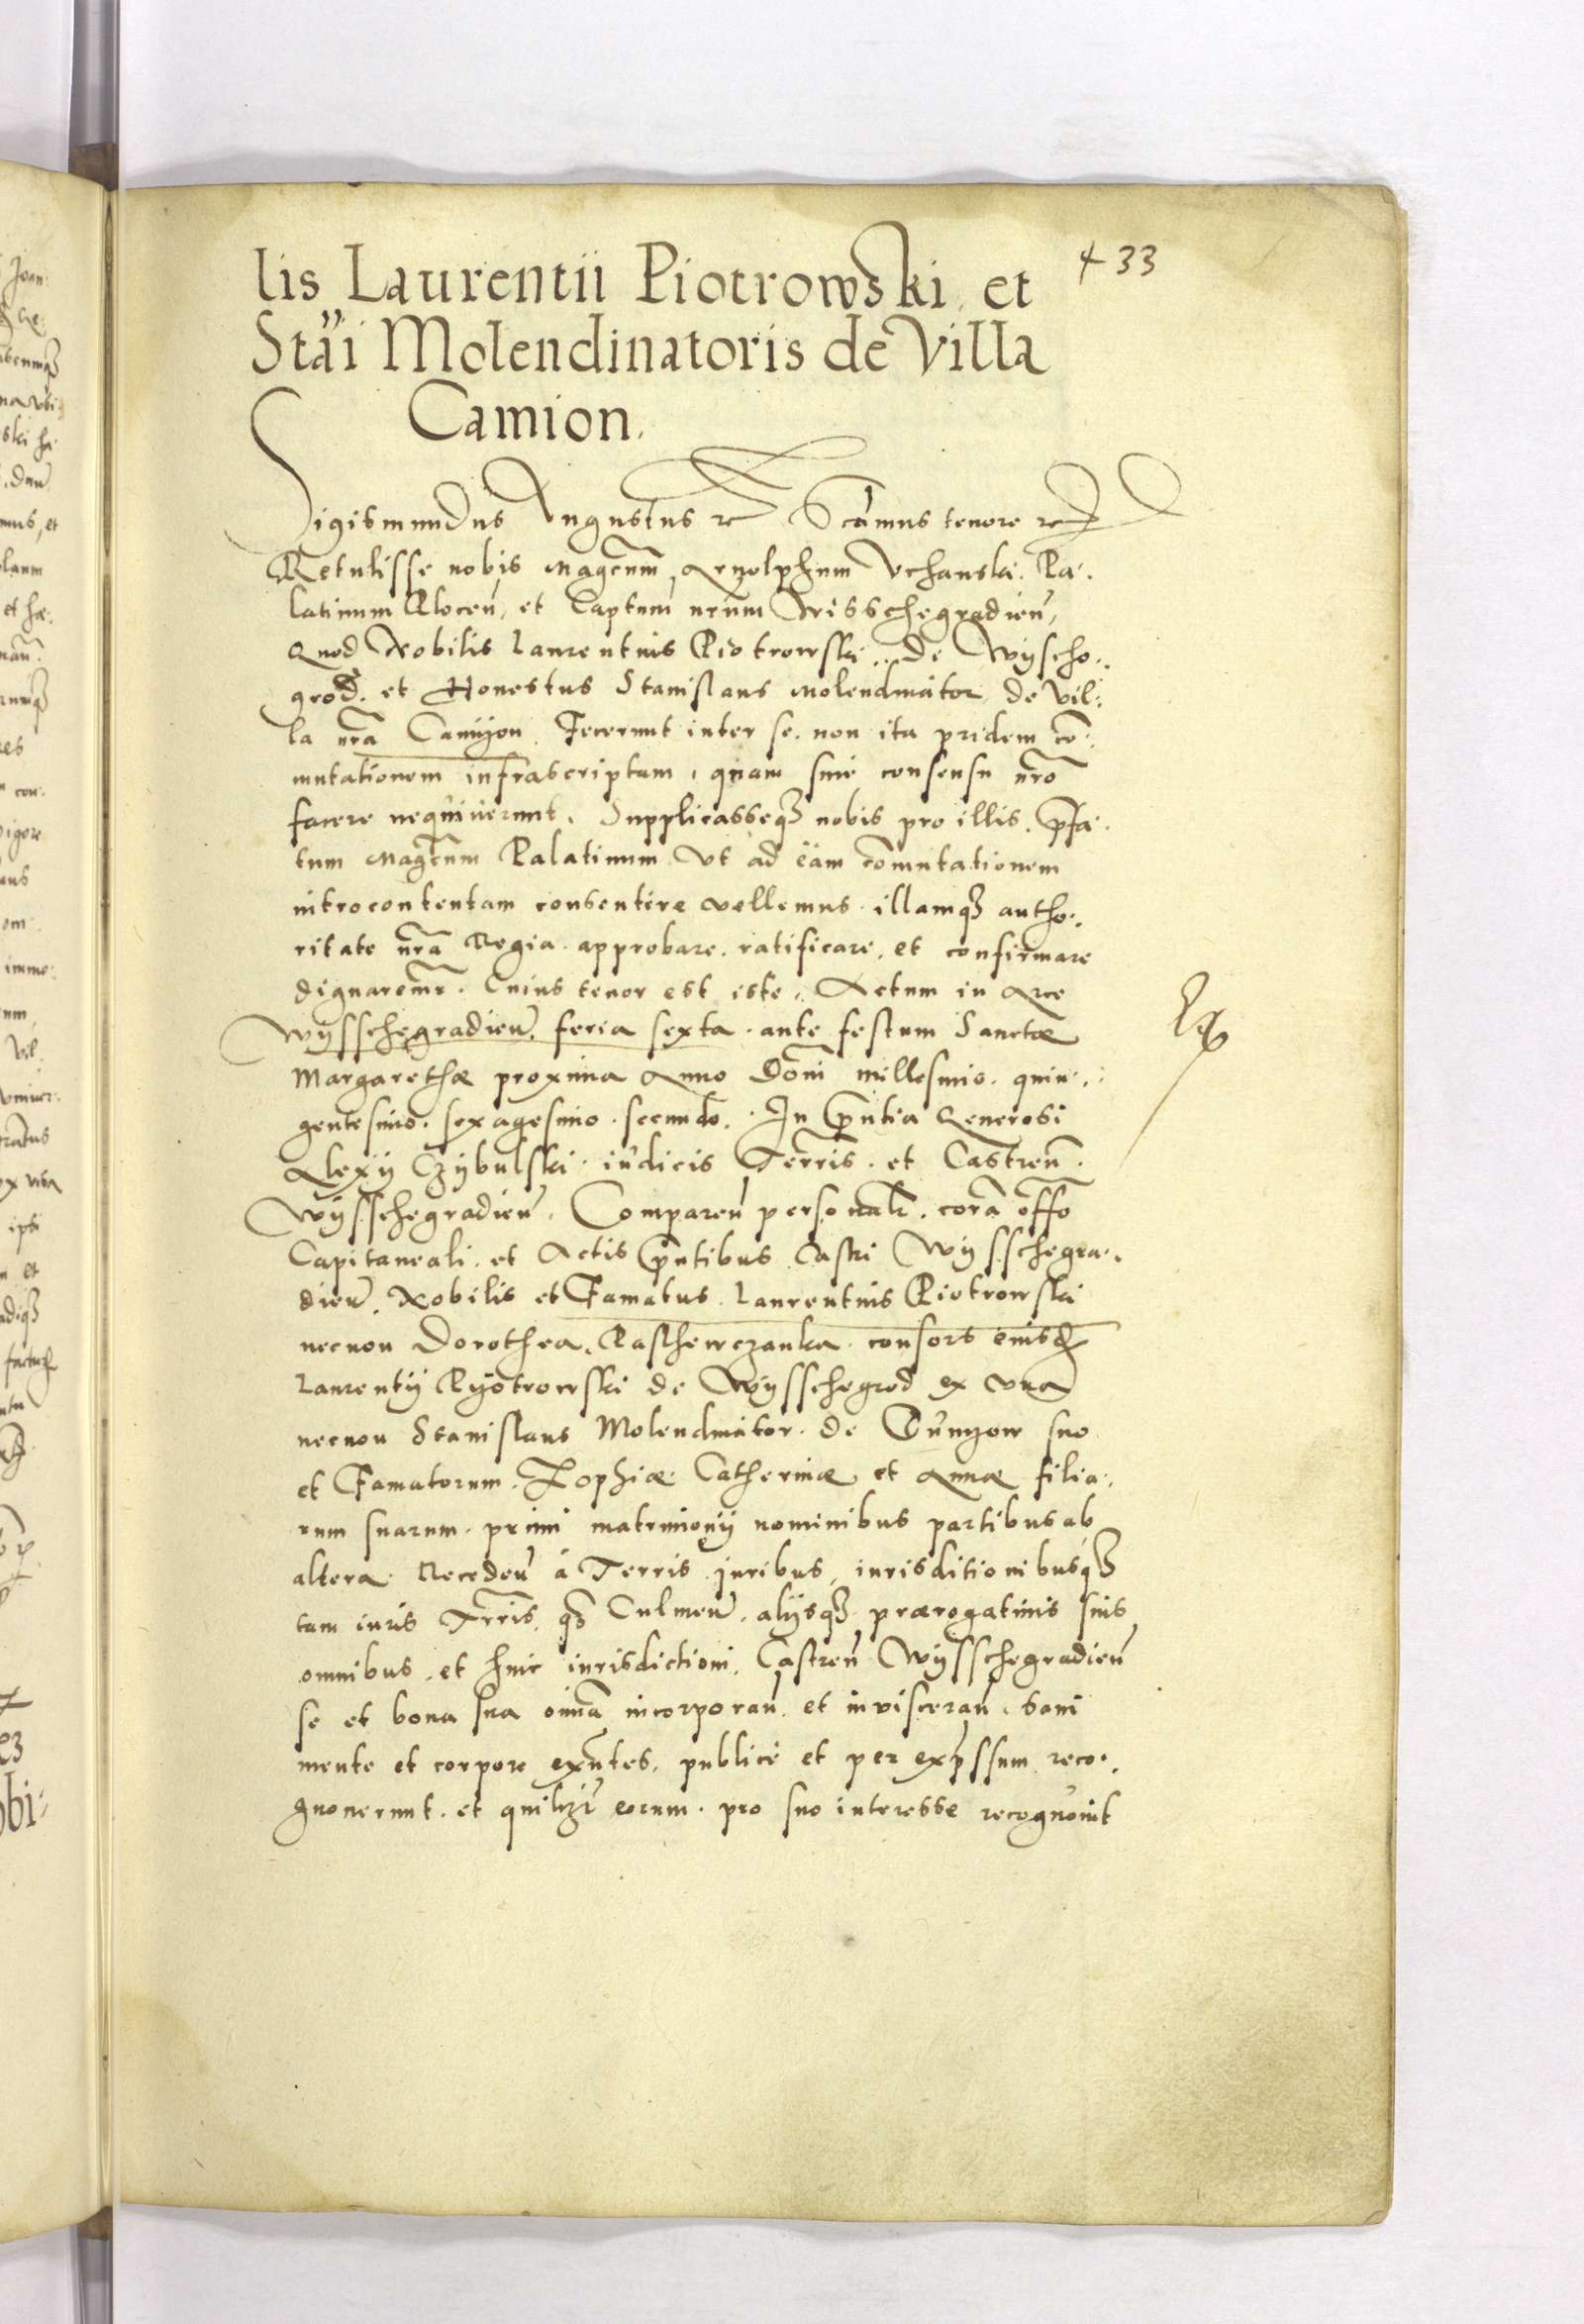 433
lis Laurentii Piotrowski et
Stai Molendinatoris de Villa
Camion.
Sigismundus Augustus Scamus tenore
Retulisse nobis Magcum Arnolphum Uchanski Pa-
latinum Plocen, et Captum nrum Wisschegradien,
Quod Nobilis Laurentius Piotrowski de Wyscho-
grod. et Honestus Stanislaus Molendinator de Vil-
la nra Camyon. Fecerunt inter se. non ita pridem co-
mutationem infrascriptam, quam sine consensu nro
facere nequiverunt. Supplicasseq3 nobis pro illis. pfa-
tum Magcum Palatinum. Ut ad eam comutationem
introcontentam consentire vellemus. illamq3 autho-
ritate nra Regia. approbare. ratificare. et confirmare
dignaremr. Cuius tenor est iste. Actum in Arce
Wysschegradien. feria sexta. ante festum Sanctæ
Margarethæ proxima Anno Domi millesimo. quin-
gentesimo. sexagesimo. secundo. In pntia Generosi
Alexii Czybulski. iudicis Terris. et Castren.
Wysschegradien. Comparen personalr. cora offo
Capitaneali. et Actis pntibus Castri Wysschegra-
dien. Nobilis et Famatus. Laurentius Piotrowski
necnon Dorothea Paschewczanka. consors eiusd
Laurentij Pyotrowski de Wysschegrod ex una
necnon Stanislaus Molendinator. de suo
et Famatorum. Zophiæ. Catherinæ et Annæ filia-
rum suarum. primi matrimonij nominibus partibus ab
altera. Receden a Terris. juribus, iurisditionibusq3
tam iuris Trris. q3 Culmen. alijsq3 prærogativis suis
omnibus. et huic iurisdictioni. Castren Wysschegradien
se et bona sua omia incorporan. et invisceran. sani
mente et corpore exntes. publice et per expssum reco-
gnoverunt. et quilibr eorum. pro suo interesse recognovit